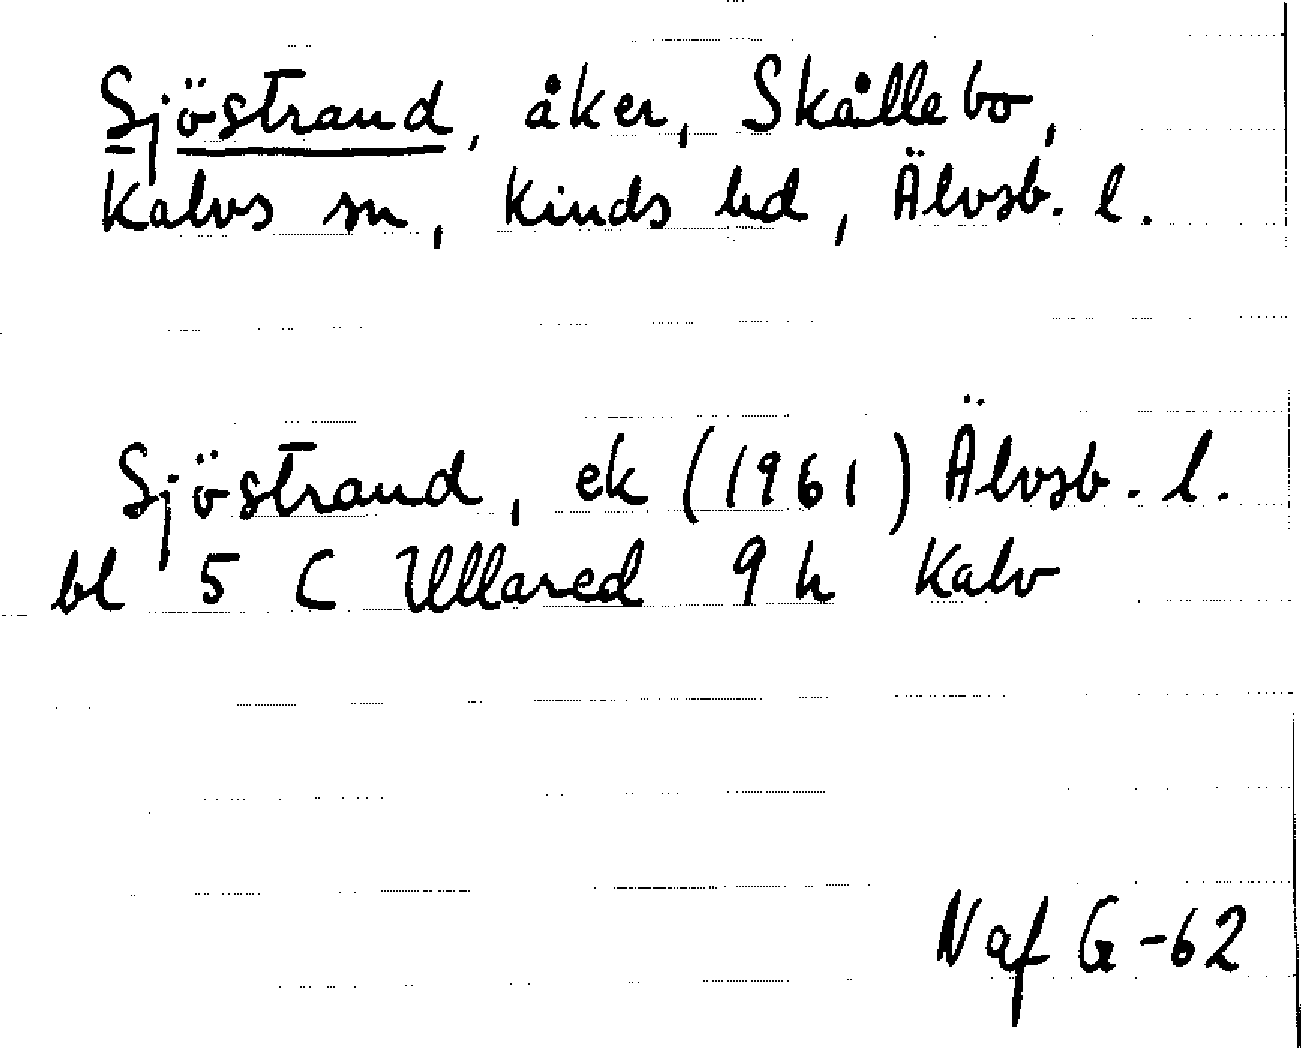 Sjöstrand, åker, Skållebo,
Kalvs sn, Kinds hd, Älvsb. l.
Sjöstrand, ek (1961) Älvsb. l.
bl 5 C Ullared 9 h Kalv
Naf G -62